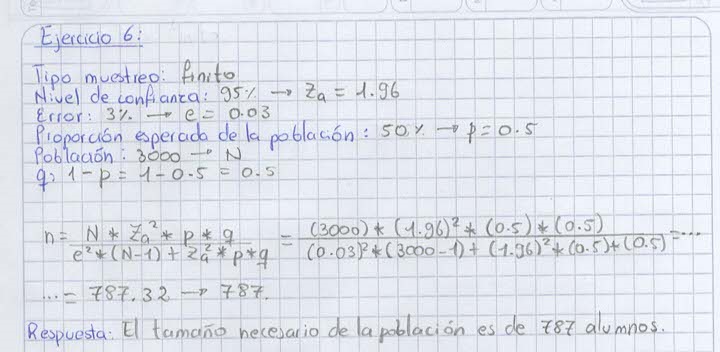 Ejercicio 6:
Tipo muestreo: finito
Nivel de confianza: 95% → Za = 1.96
Error: 3% → e = 0.03
Proporción esperada de la población: 50% → p = 0.5
Población: 3000 → N
q: 1 - p = 1 - 0.5 = 0.5
n = N * Za² * p * q / e² * (N-1) + Za² * p * q = (3000) * (1.96)² * (0.5) * (0.5) / (0.03)² * (3000-1) + (1.96)² * (0.5) + (0.5) = ...
... = 787.32 → 787.
Respuesta: El tamaño necesario de la población es de 787 alumnos.